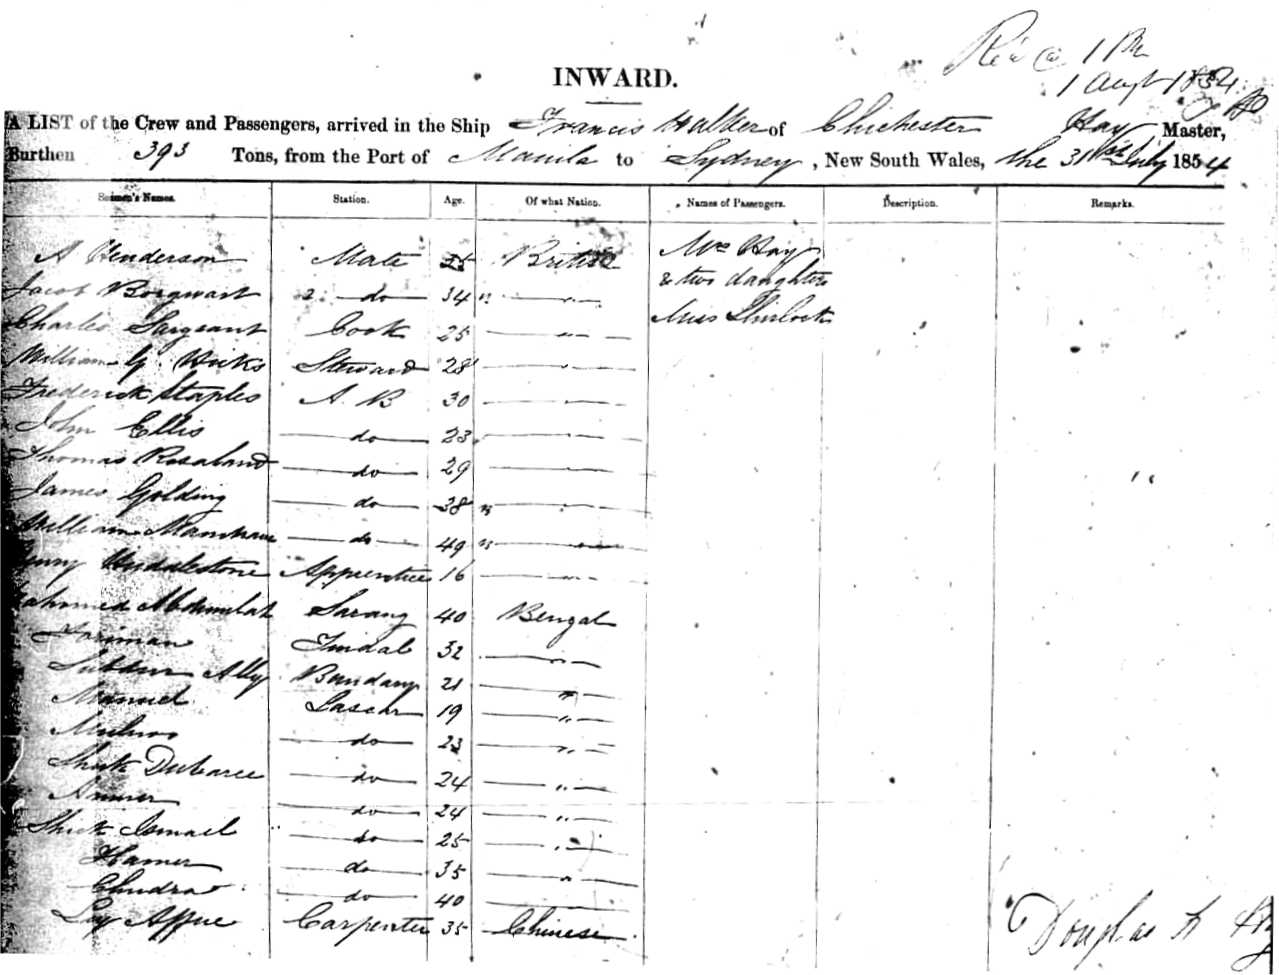 Rec'd @ 1 PM
1 Augt 1854
INWARD.
A LIST of the Crew and Passengers, arrived in the Ship Francis Walker of Chichester Hay Master,
Burthen 393 Tons, from the Port of Manila to Sydney, New South Wales, the 31st July 1854
Seamen's Names. Station. Age. Of what Nation. Names of Passengers. Description. Remarks.
A Henderson Mate 25 British Mrs Hay
& two daughters
Jacob Borgwart 2 do 34 " "
Miss Shurlock
Charles Sargeant Cook 25 "
William G. Hicks Steward 28 "
Frederick Staples A. B 30 "
John Ellis do 23 "
Thomas do 29 "
James Golding do 38 " "
William do 49 " "
Henry Huddlestone Apprentice 16 "
Sarang 40 Bengal
Tindal 32 "
Ally 21 "
Manuel Lascar 19 "
do 23 "
Sheik do 24 "
do 24 "
Sheik Ismael do 25 "
Hamer do 35 "
Chudra do 40
Carpenter 35 Chinese
Douglas